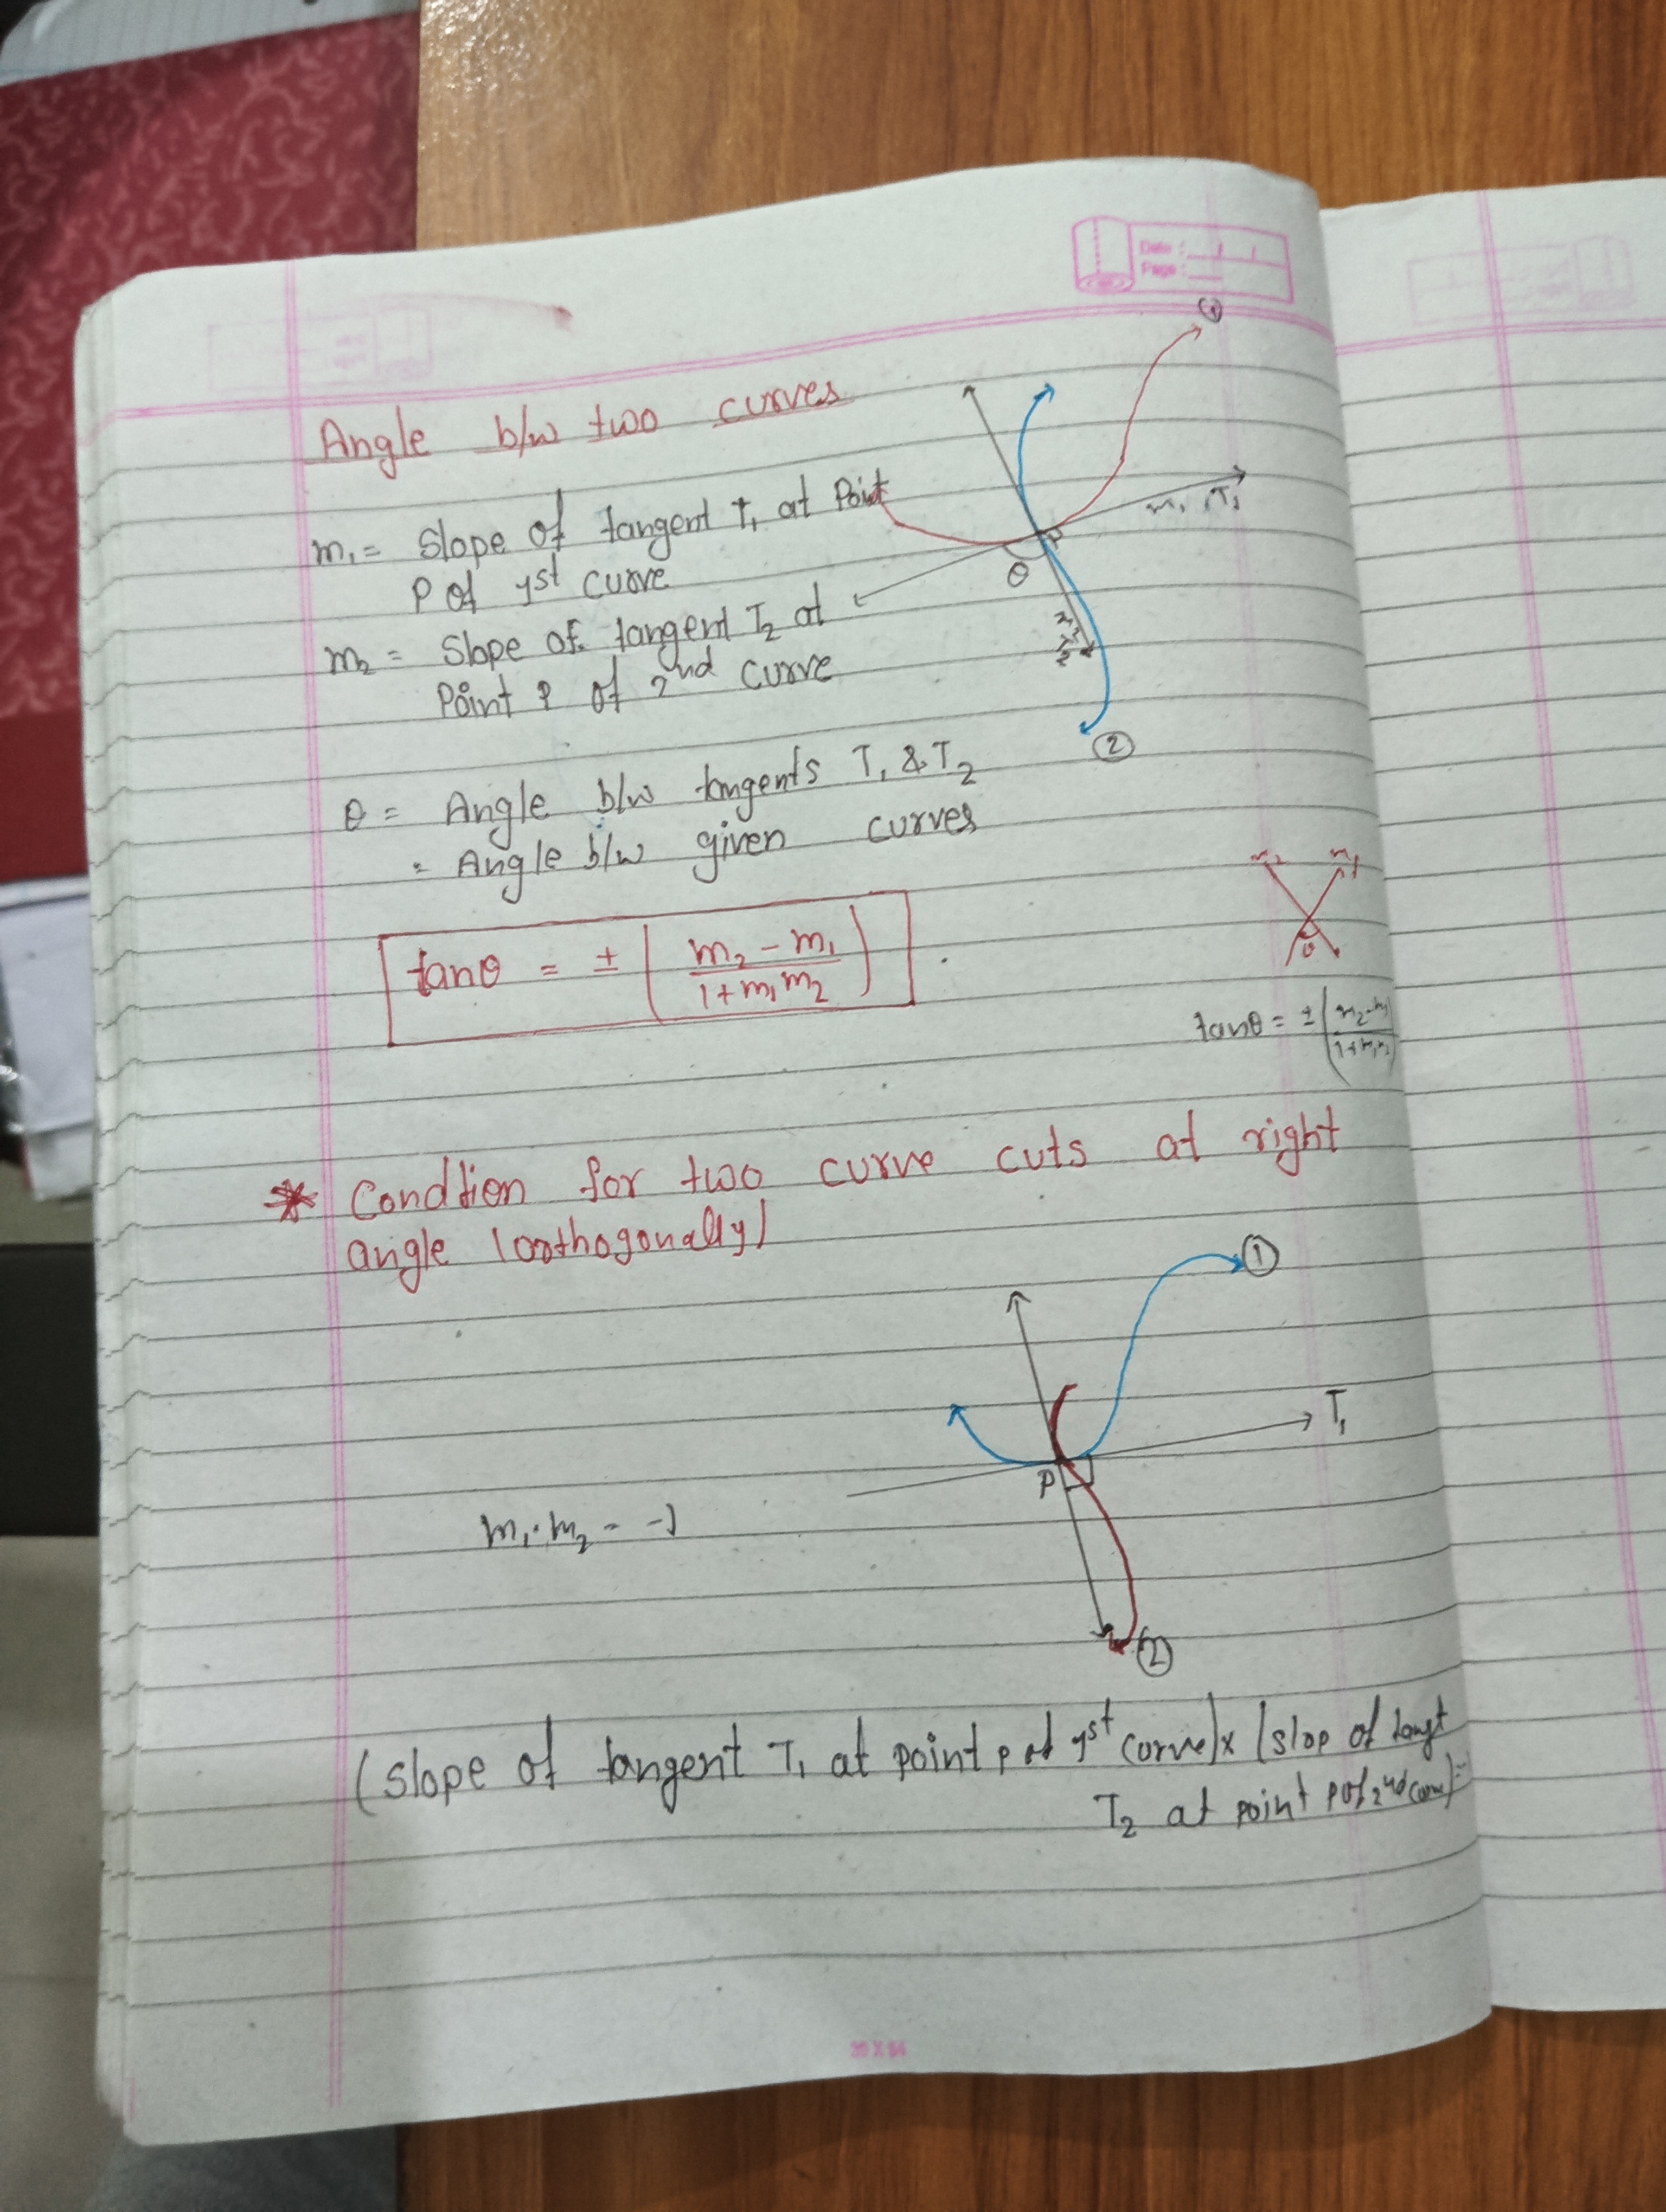 Date :
Page :
Angle b/w two curves
m₁ = Slope of tangent T₁ at Point
P of 1st curve
m₂ = Slope of tangent T₂ at
Point P of 2nd curve
①
m₁ , T₁
P
θ
②
θ = Angle b/w tangents T₁ & T₂
= Angle b/w given curves
tanθ = ± ( m₂ - m₁ / 1 + m₁ m₂ )
m₂ m₁
θ
tanθ = ± ( m₂ - m₁ / 1 + m₁ m₂ )
* Condtion for two curve cuts at right
angle (orthogonally)
①
T₁
P
m₁ . m₂ = -1
②
(Slope of tangent T₁ at point P of 1st curve) x (slop of
T₂ at point P of 2nd ) =